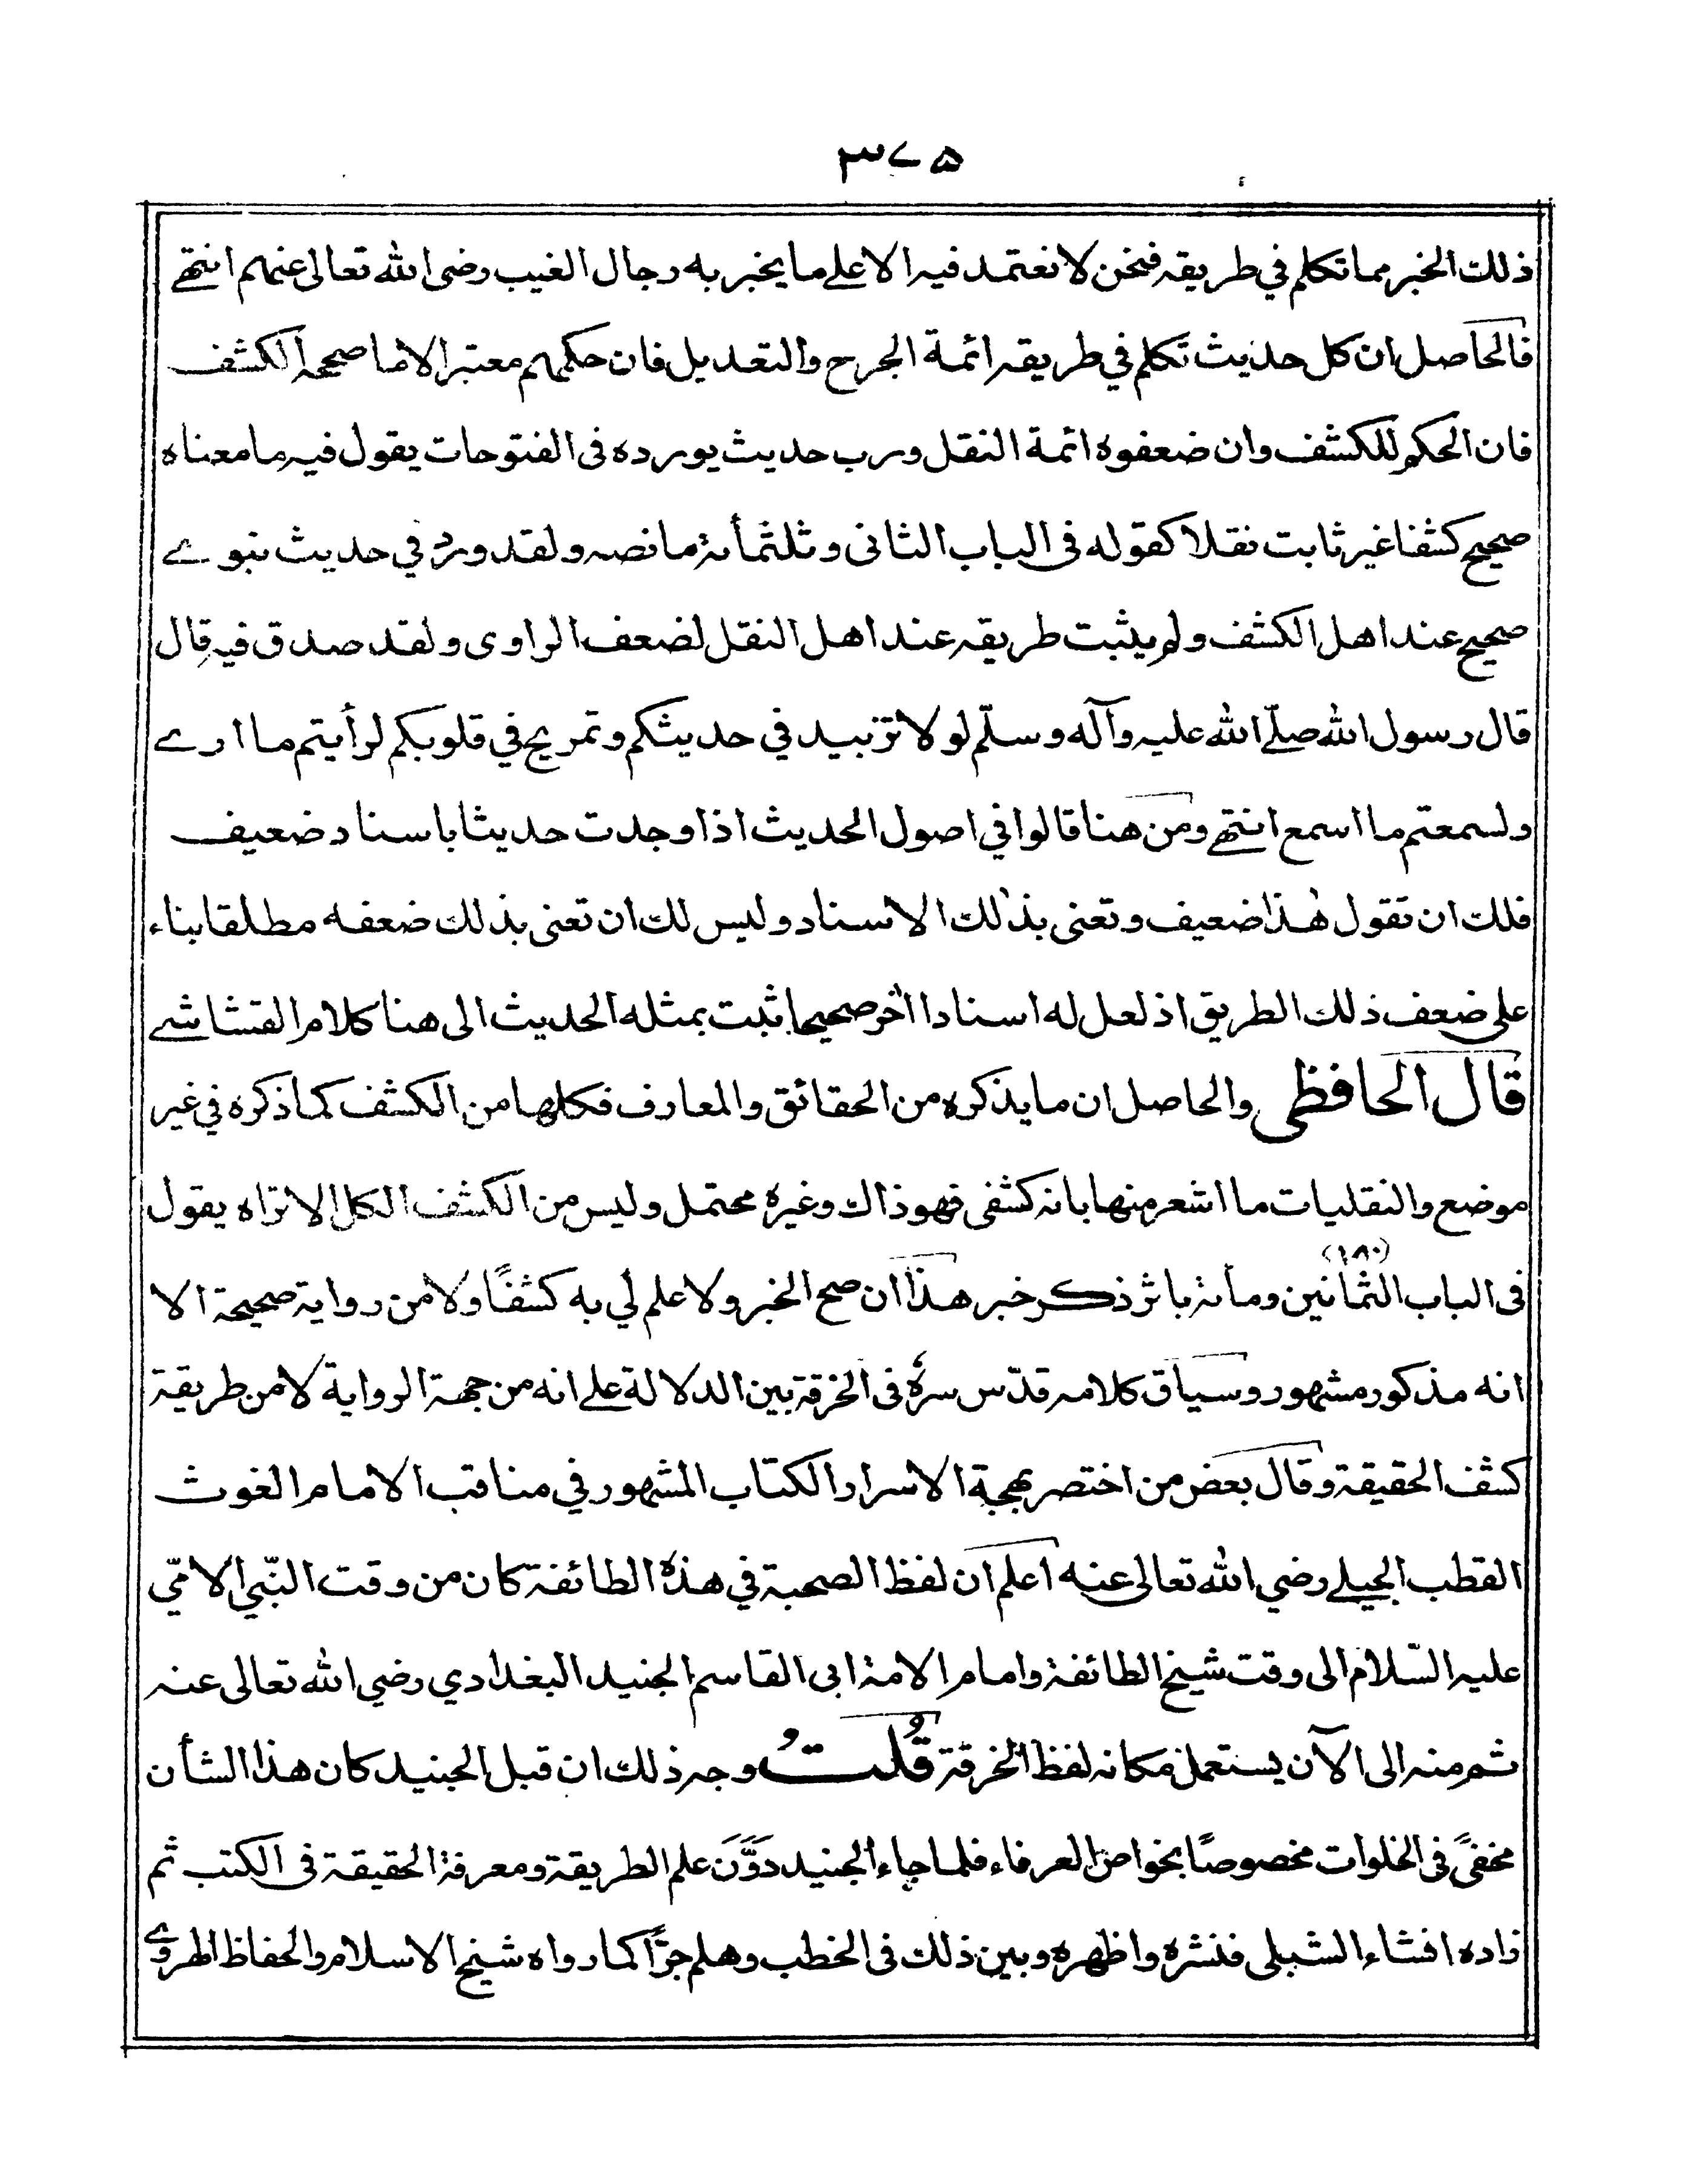 ٣٧٥
ذلك الخبر مما تكلم في طريقه فنحن لا نعتمد فيه الا على ما يخبر به رجال الغيب رضى الله تعالى عنهم انتهے
فالحاصل ان كل حديث تكلم في طريقه ائمة الجرح والتعديل فان حكمهم معتبر الا ما صححه الكشف
فان الحكم للكشف وان ضعفوه ائمة النقل ورب حديث يورده فى الفتوحات يقول فيه ما معناه
صحيح كشفا غير ثابت نقلا كقوله فى الباب الثانى وثلثمأئة ما نصه ولقد ورد في حديث نبوے
صحيح عند اهل الكشف ولم يثبت طريقه عند اهل النقل لضعف الراوى ولقد صدق فيه قال
قال رسول الله صلّے الله عليه وآله وسلّم لولا تزييد في حديثكم وتمريج في قلوبكم لرأيتم ما ارے
ولسمعتم ما اسمع انتهے ومن هنا قالوا في اصول الحديث اذا وجدت حديثا باسناد ضعيف
فلك ان تقول هٰذا ضعيف وتعنى بذٰلك الاسناد وليس لك ان تعنى بذلك ضعفه مطلقا بناء
على ضعف ذلك الطريق اذ لعل له اسنادا اٰخر صحيحا ثبت بمثله الحديث الى هنا كلام القشاشے
قال الحافظى والحاصل ان ما يذكره من الحقائق والمعارف فكلها من الكشف كما ذكره في غير
موضع والنقليات ما اشعر منها بانه كشفى فهو ذاك وغيره محتمل وليس من الكشف الكل الا تراه يقول
فى الباب الثمانين ومأئة (١٨٠) باثر ذكر خبر هذا ان صح الخبر ولا علم لي به كشفًا ولا من رواية صحيحة الا
انه مذكور مشهور وسياق كلامه قدّس سرهٗ فى الخرقة بين الدلالة علے انه من جهة الرواية لا من طريقة
كشف الحقيقة وقال بعض من اختصر بهجة الاسرار الكتاب المشهور في مناقب الامام الغوث
القطب الجيلے رضي الله تعالى عنه اعلم ان لفظ الصحبة في هذه الطائفة كان من وقت النّبي الامّي
عليه السّلام الى وقت شيخ الطائفة وامام الامة ابى القاسم الجنيد البغدادي رضي الله تعالى عنه
ثم منه الى الآن يستعمل مكانه لفظ الخرقة قُلتُ وجه ذلك ان قبل الجنيد كان هذا الشأن
مخفيً فى الخلوات مخصوصًا بخواص العرفاء فلما جاء الجنيد دَوَّنَ علم الطريقة ومعرفة الحقيقة فى الكتب ثم
زاده افشاء الشبلى فنشره واظهره وبين ذلك فى الخطب وهلم جرًّا كما رواه شيخ الاسلام والحفاظ الهروے